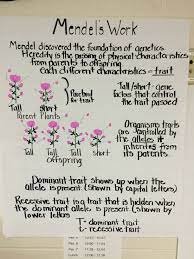 Mendel's Work
Mendel discovered the foundation of genetics
Heredity is the passing of physical characteristics
from parents to offspring
Each different characteristics - trait
Tall short
Parent Plants
Parents
for trait
Tall/short gene
factors that control
the trait passed
Tall Tall Tall short
offspring
Organisms traits
are controlled by
the alleles it
inherites from
its parents.
Dominant trait shows up when the
allele is present. (Shown by capital letters)
Recessive trait is a trait that is hidden when
the dominant allele is present (shown by
lower letters)
T- dominant trait
t- recessive trait